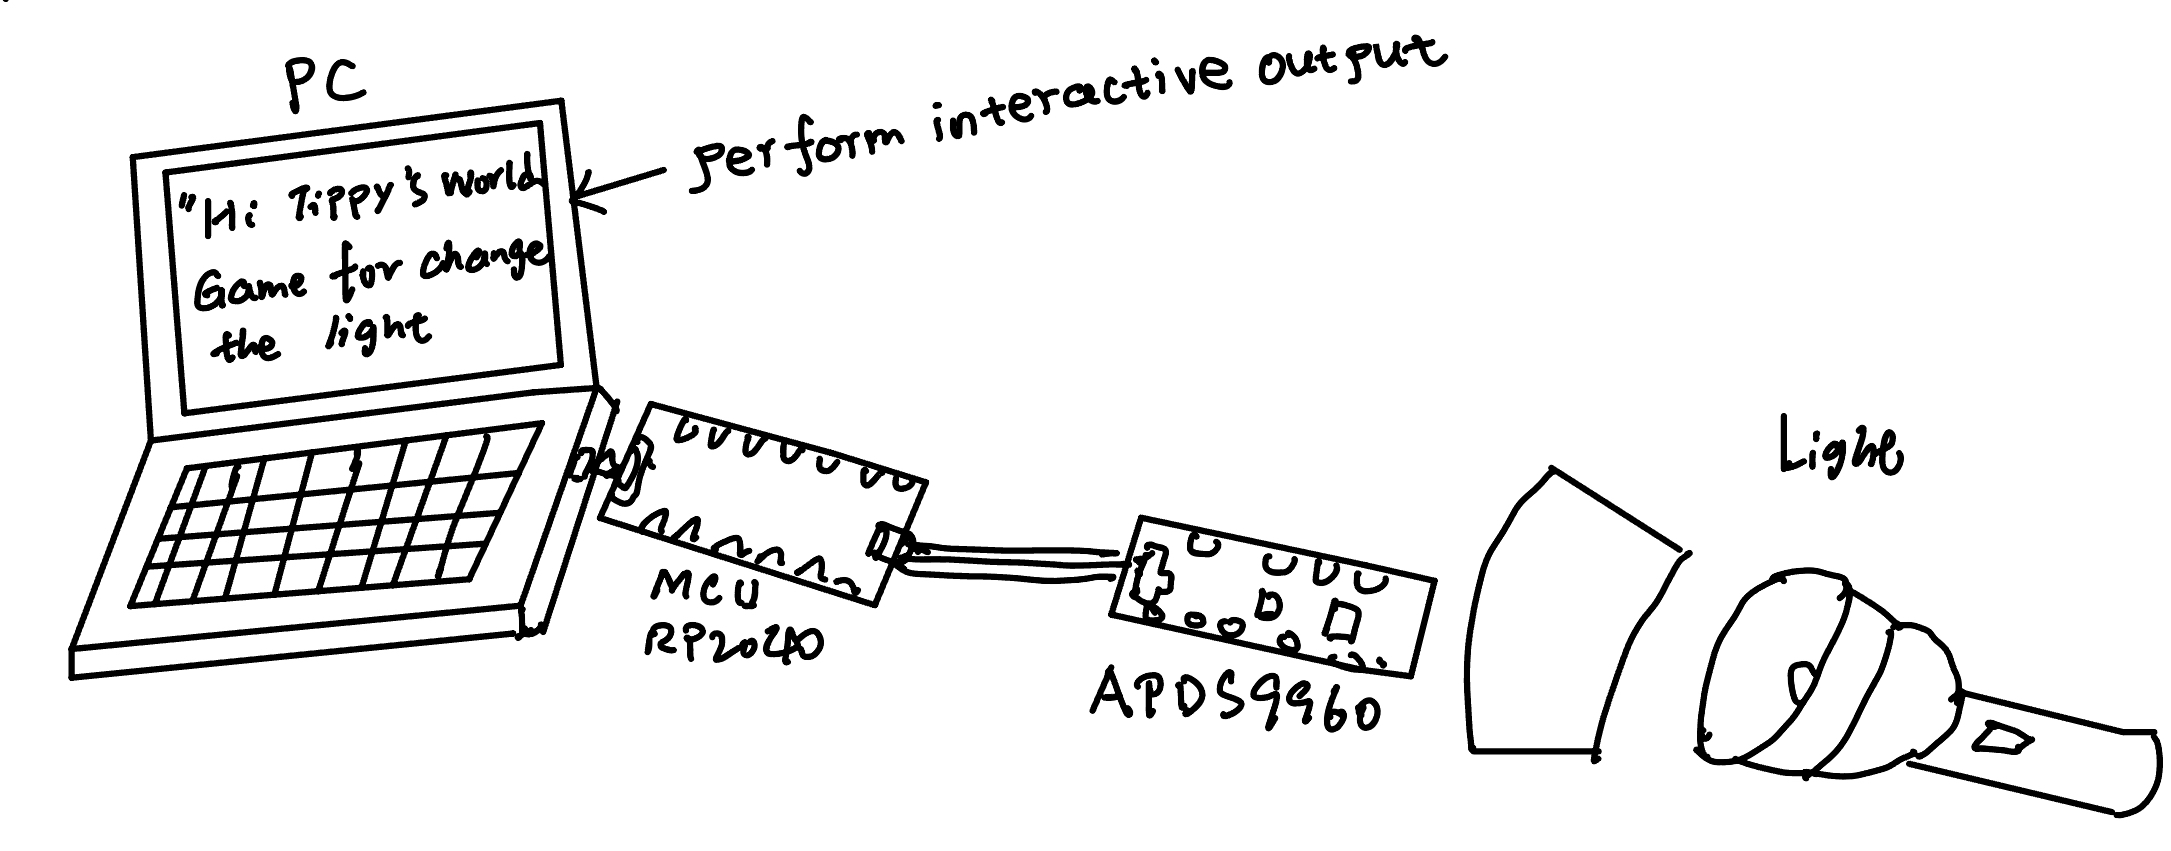 PC
perform interactive output
"Hi Tippy's world
Game for change
the light
MCU
RP2040
APDS9960
Light